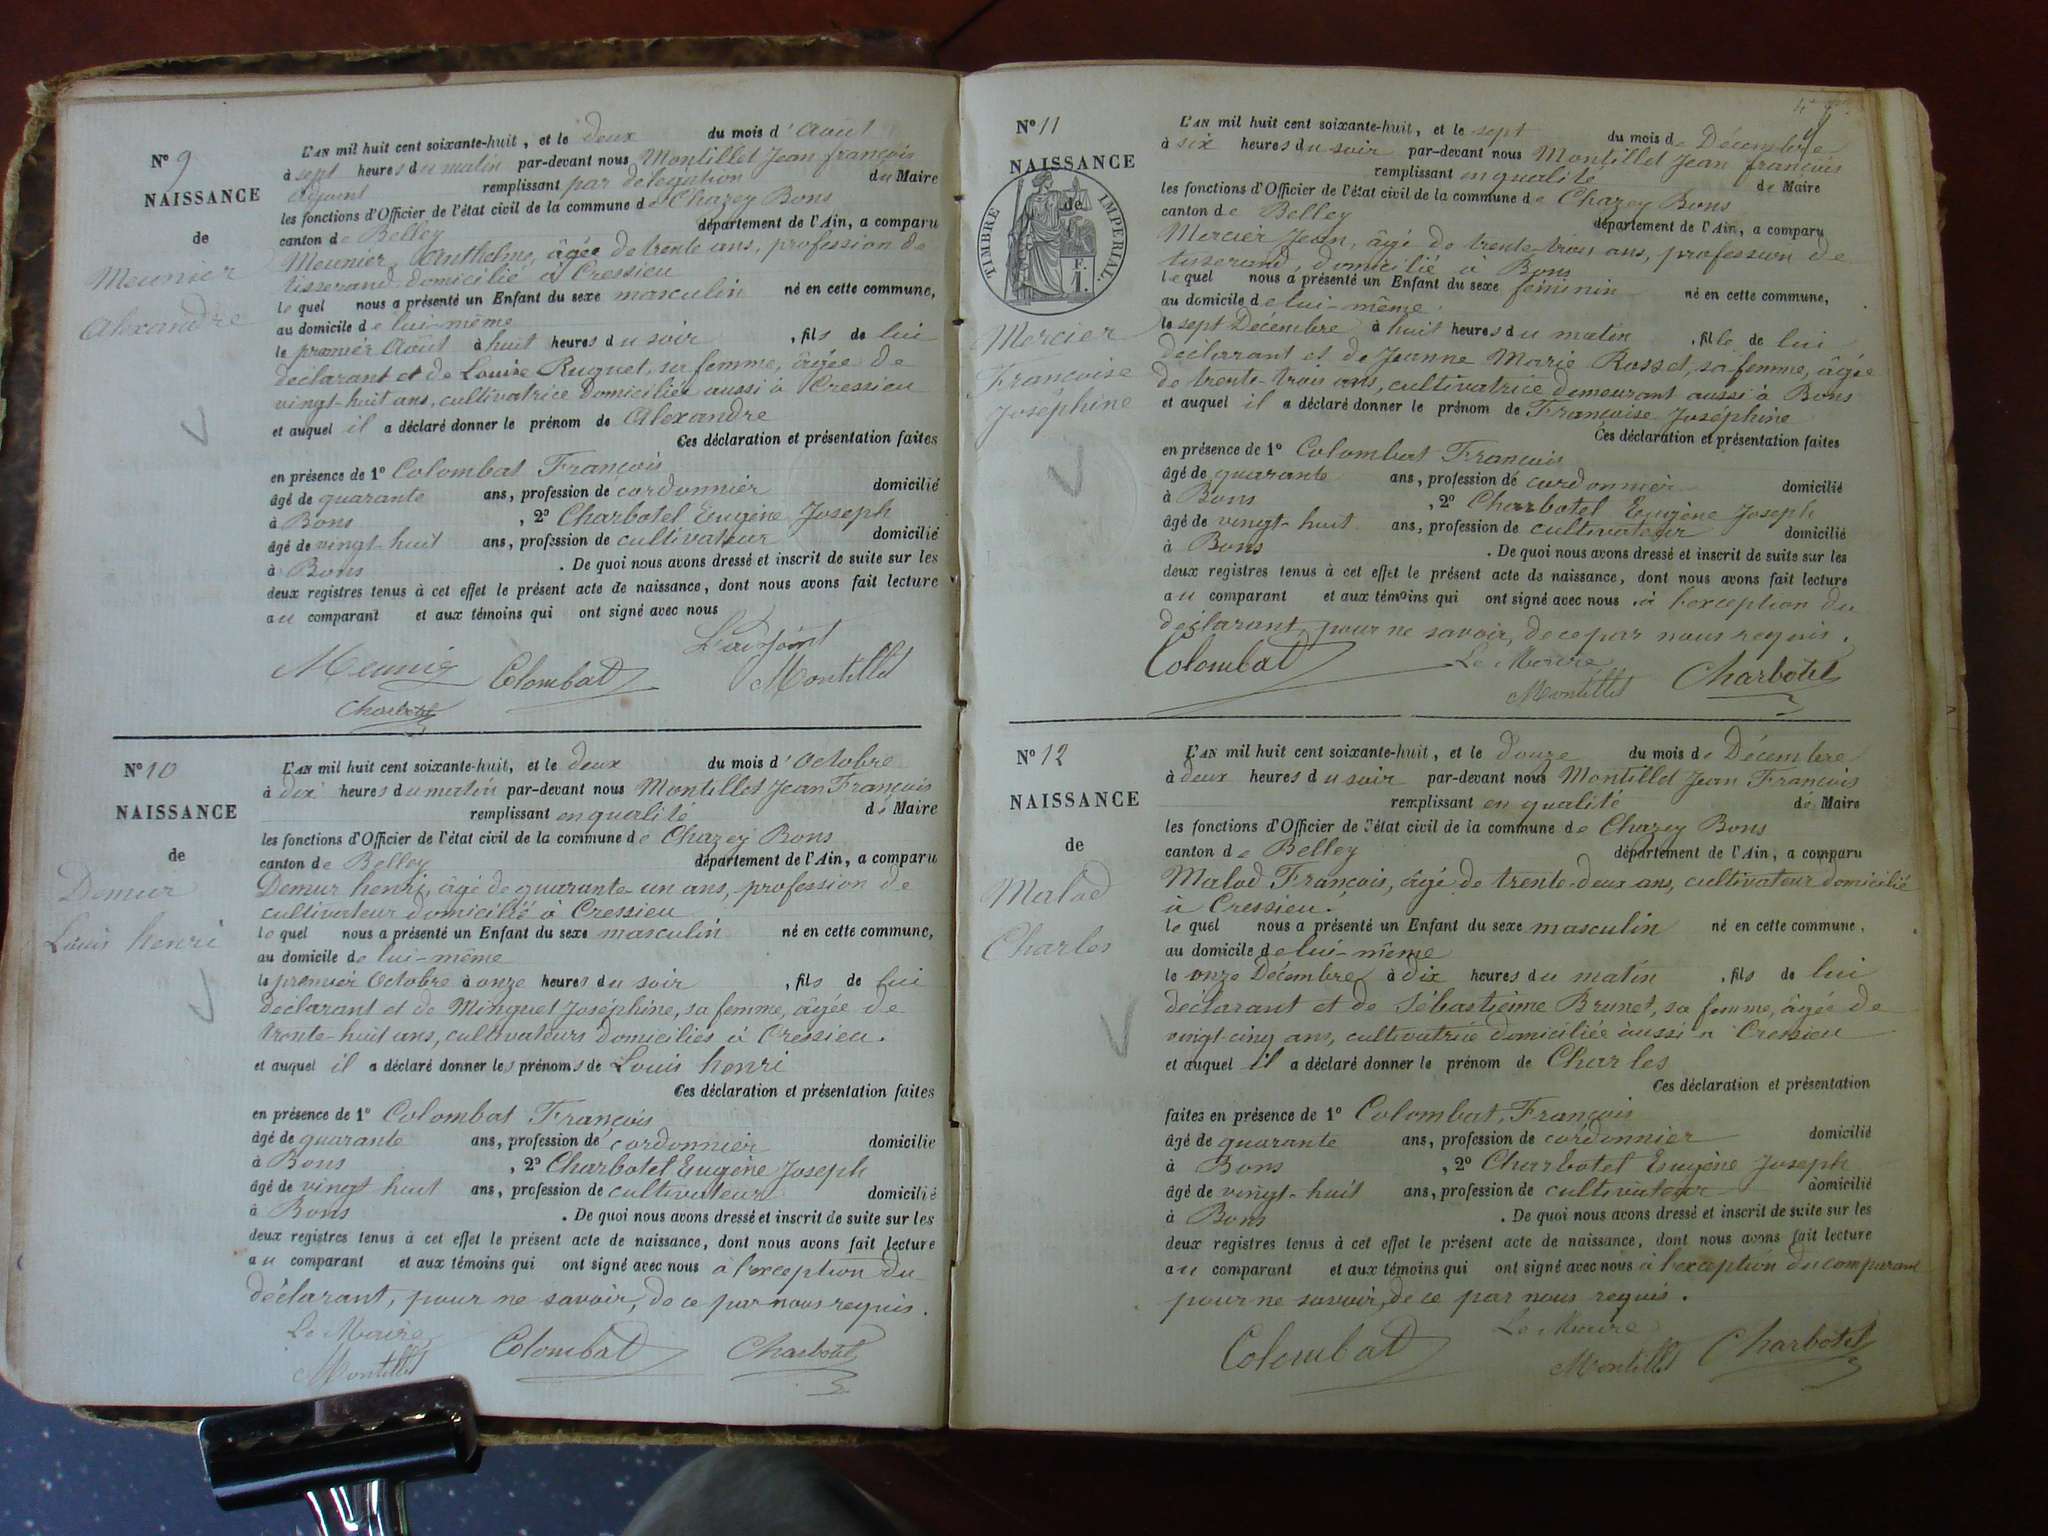 N° 9
NAISSANCE
de
Meunier
Alexandre
L'AN mil huit cent soixante-huit, et le deux du mois d'Août
à sept heures du matin par-devant nous Montillet Jean françois
adjoint remplissant par délégation du Maire
les fonctions d'Officier de l'état civil de la commune de Chazey Bons
canton de Belley département de l'Ain, a comparu
Meunier Anthelme, âgée de trente ans, profession de
tisserand domicilié à Cressieu
le quel nous a présenté un Enfant du sexe masculin né en cette commune,
au domicile de lui-même
le premier Août à huit heures du soir, fils de lui
déclarant et de Louise Ruguet, sa femme, âgée de
vingt-huit ans, cultivatrice domiciliée aussi à Cressieu
et auquel il a déclaré donner le prénom de Alexandre
Ces déclaration et présentation faites
en présence de 1° Colombat François
âgé de quarante ans, profession de cordonnier domicilié
à Bons, 2° Charbotel Eugène Joseph
âgé de vingt-huit ans, profession de cultivateur domicilié
à Bons. De quoi nous avons dressé et inscrit de suite sur les
deux registres tenus à cet effet le présent acte de naissance, dont nous avons fait lecture
au comparant et aux témoins qui ont signé avec nous
L'adjoint
Meunier Colombat Montillet
Charbotel
N° 10
NAISSANCE
de
Demur
Louis henri
L'AN mil huit cent soixante-huit, et le deux du mois d'Octobre
à dix heures du matin par-devant nous Montillet Jean François
remplissant en qualité de Maire
les fonctions d'Officier de l'état civil de la commune de Chazey Bons
canton de Belley département de l'Ain, a comparu
Demur henri, âgé de quarante un ans, profession de
cultivateur domicilié à Cressieu
le quel nous a présenté un Enfant du sexe masculin né en cette commune,
au domicile de lui-même
le premier Octobre à onze heures du soir, fils de lui
déclarant et de Minguet Joséphine, sa femme, âgée de
trente-huit ans, cultivateurs domiciliés à Cressieu.
et auquel il a déclaré donner les prénoms de Louis henri
Ces déclaration et présentation faites
en présence de 1° Colombat François
âgé de quarante ans, profession de cordonnier domicilié
à Bons, 2° Charbotel Eugène Joseph
âgé de vingt huit ans, profession de cultivateur domicilié
à Bons. De quoi nous avons dressé et inscrit de suite sur les
deux registres tenus à cet effet le présent acte de naissance, dont nous avons fait lecture
au comparant et aux témoins qui ont signé avec nous à l'exception du
déclarant, pour ne savoir, de ce par nous requis.
Le Maire
Montillet Colombat Charbotel
N° 11
NAISSANCE
de
TIMBRE IMPERIAL.
F.
1.
Mercier
Françoise
Joséphine
L'AN mil huit cent soixante-huit, et le sept du mois de Décembre
à six heures du soir par-devant nous Montillet Jean françois
remplissant en qualité de Maire
les fonctions d'Officier de l'état civil de la commune de Chazey Bons
canton de Belley département de l'Ain, a comparu
Mercier Jean, âgé de trente-trois ans, profession de
tisserand, domicilié à Bons
le quel nous a présenté un Enfant du sexe féminin né en cette commune,
au domicile de lui-même
le sept Décembre à huit heures du matin, fille de lui
déclarant et de Jeanne Marie Rosset, sa femme, âgée
de trente-trois ans, cultivatrice demeurant aussi à Bons
et auquel il a déclaré donner le prénom de Françoise Joséphine
Ces déclaration et présentation faites
en présence de 1° Colombat François
âgé de quarante ans, profession de cordonnier domicilié
à Bons, 2° Charbotel Eugène Joseph
âgé de vingt-huit ans, profession de cultivateur domicilié
à Bons. De quoi nous avons dressé et inscrit de suite sur les
deux registres tenus à cet effet le présent acte de naissance, dont nous avons fait lecture
au comparant et aux témoins qui ont signé avec nous à l'exception du
déclarant, pour ne savoir, de ce par nous requis.
Colombat Le Maire Charbotel
Montillet
N° 12
NAISSANCE
de
Malod
Charles
L'AN mil huit cent soixante-huit, et le douze du mois de Décembre
à deux heures du soir par-devant nous Montillet Jean François
remplissant en qualité de Maire
les fonctions d'Officier de l'état civil de la commune de Chazey Bons
canton de Belley département de l'Ain, a comparu
Malod François, âgé de trente-deux ans, cultivateur domicilié
à Cressieu.
le quel nous a présenté un Enfant du sexe masculin né en cette commune,
au domicile de lui-même
le onze Décembre à dix heures du matin, fils de lui
déclarant et de Sébastienne Brunet, sa femme, âgée de
vingt-cinq ans, cultivatrice domiciliée aussi à Cressieu
et auquel il a déclaré donner le prénom de Charles
Ces déclaration et présentation
faites en présence de 1° Colombat, François
âgé de quarante ans, profession de cordonnier domicilié
à Bons, 2° Charbotel Eugène Joseph
âgé de vingt-huit ans, profession de cultivateur domicilié
à Bons. De quoi nous avons dressé et inscrit de suite sur les
deux registres tenus à cet effet le présent acte de naissance, dont nous avons fait lecture
au comparant et aux témoins qui ont signé avec nous à l'exception du comparant
pour ne savoir, de ce par nous requis.
Le Maire
Colombat Montillet Charbotel